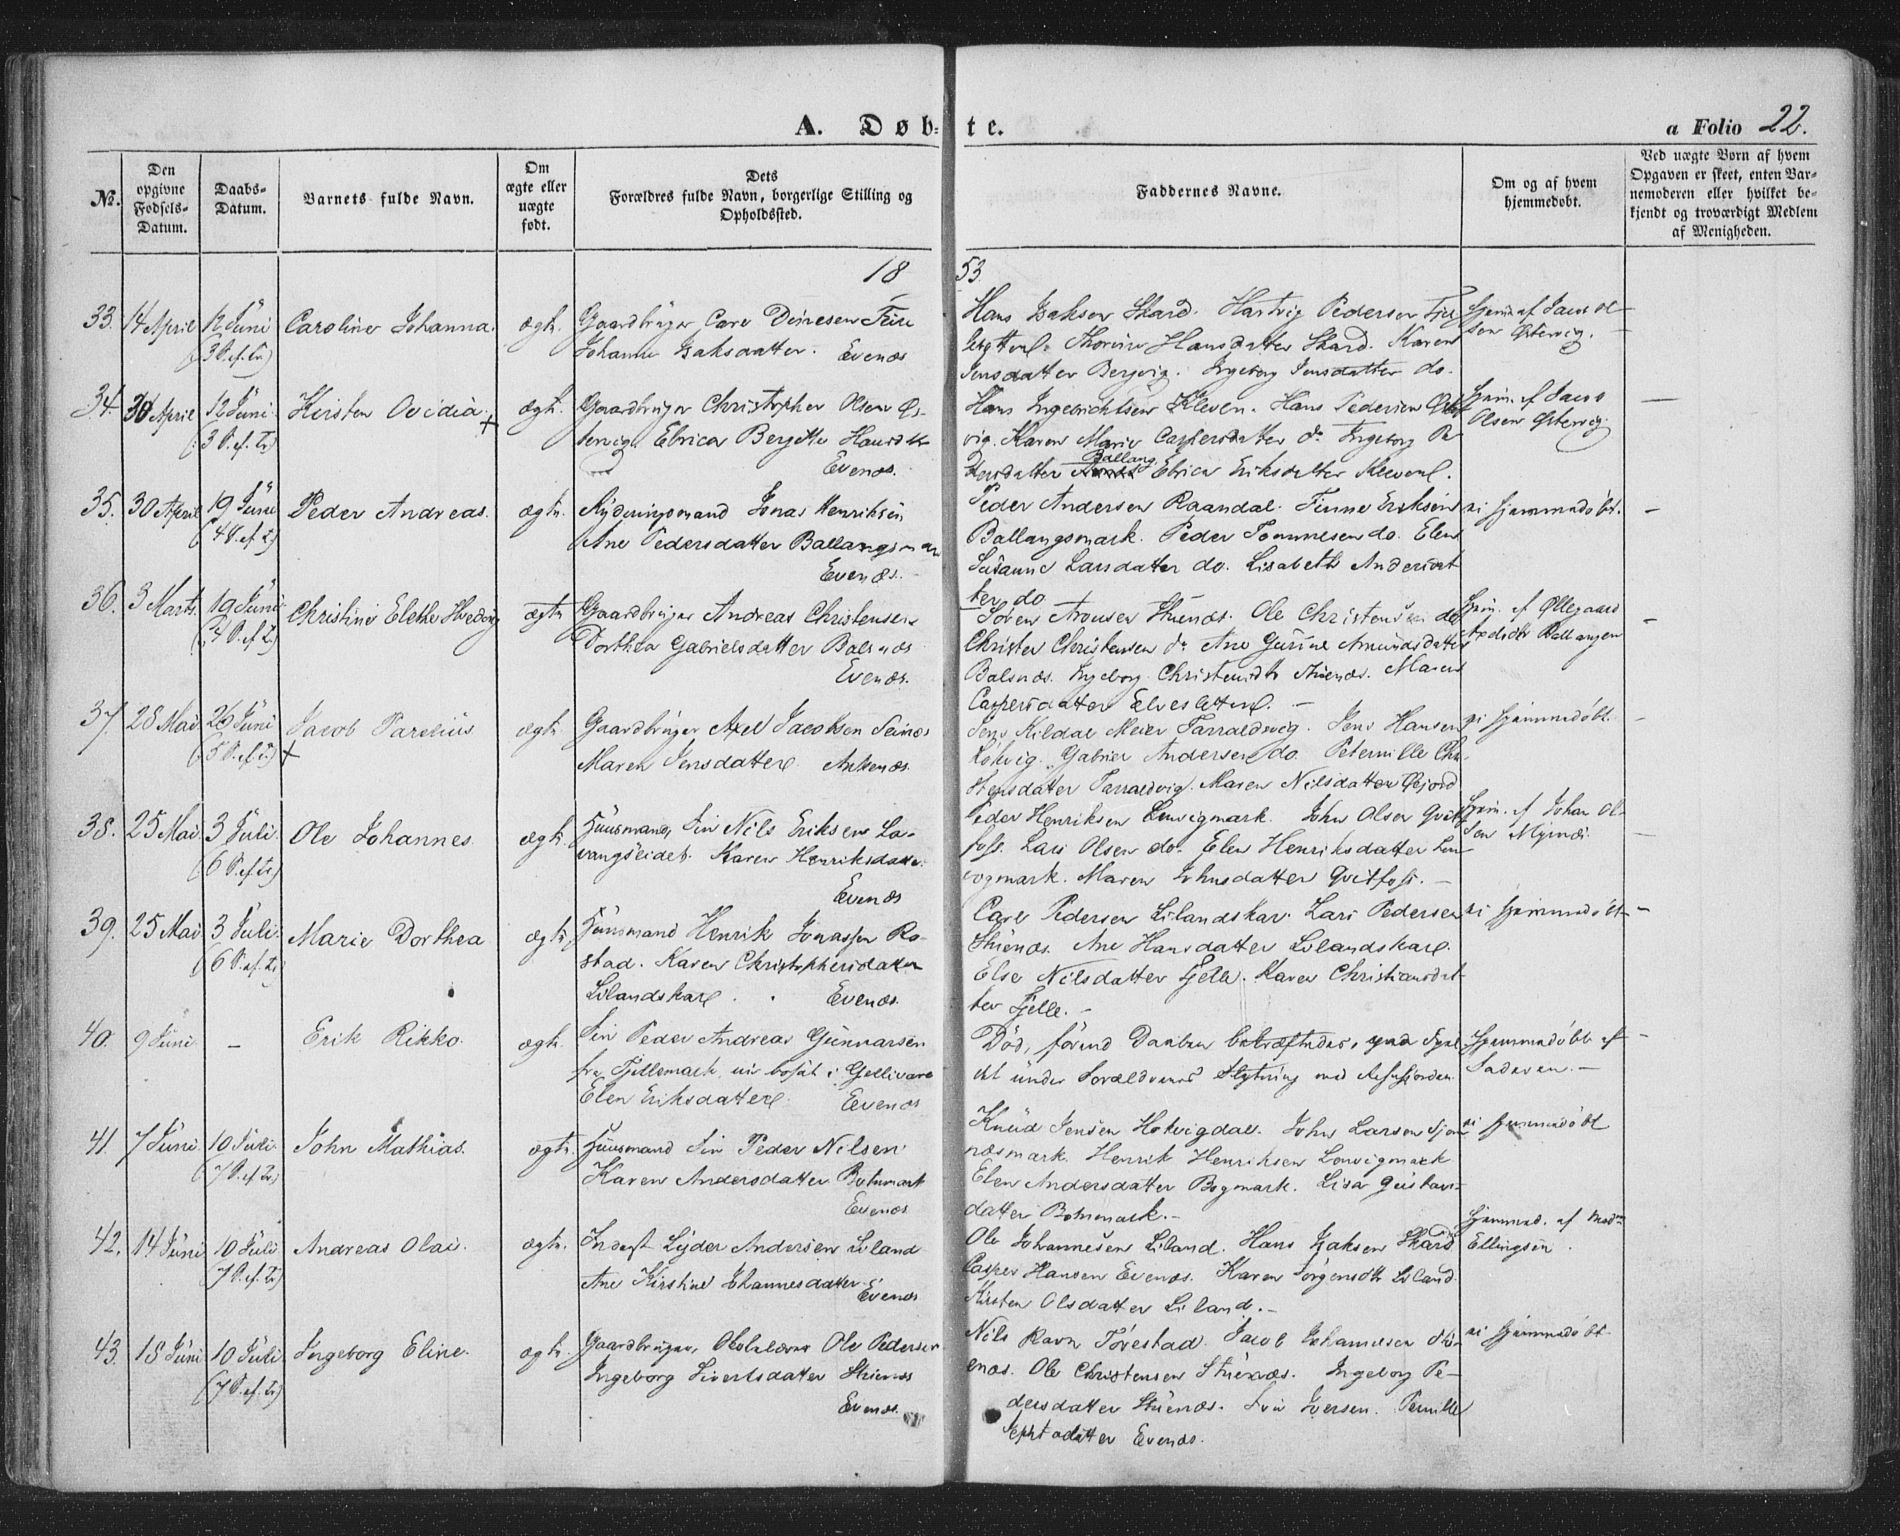 A. Døb-te.
a Folio 22.
No.
Den opgivne Fødsels-Datum.
Daabs-Datum.
Barnets fulde Navn.
Om ægte eller uægte født.
Dets Forældres fulde Navn, borgerlige Stilling og Opholdssted.
Faddernes Navne.
Om og af hvem hjemmedøbt.
Ved uægte Børn af hvem Opgaven er skeet, enten Barnemoderen eller hvilket bekjendt og troværdigt Medlem af Menigheden.
1853.
33. 14 April 12 Juni Caroline Johanna. ægte.
(3 S. ef. Tr)
Johanna Isaksdatter. Evenæs
Hans Isaksen Skard. Hartvig Pedersen
Hansdatter Skard. Karen
Jensdatter Bergvig. Ingeborg Jensdatter do.
34. 30 April 12 Juni Kirsten Ovidia ægte.
(3 S. ef. Tr)
Gaardbruger Christopher Olsen Østervig. Elrica Bergitte Hansdtr
Evenæs.
Hans Ingebrichtsen Kleven. Hans Pedersen Østervig. Karen Marie Caspersdatter do Ingeborg Pedersdatter Ballang. Elrica Eriksdatter Kleven.
Hjem. af Jacob Olsen Østervig.
35. 30 April 19 Juni Peder Andreas. ægte.
(4 S. ef. Tr)
Rydningsmand Jonas Henriksen
Ane Pedersdatter Ballangsmark
Evenæs.
Peder Andersen Raandal. Finne Eriksen
Ballangsmark. Peder Tommesen do. Elen
Susanne Larsdatter do. Lisabeth Andersdatter do
ei hjemmedøbt.
36. 3 Marts. 19 Juni Christine Elethe Hvedevig ægte
(4 S. ef. Tr)
Gaardbruger Andreas Christensen
Dorthea Gabrielsdatter Balsnæs
Evenæs.
Søren Arousen Stuenæs. Ole Christensen do
Christen Christensen do Ane Gurine Amundsdatter
Balsnæs. Ingeborg Christensdtr Stuenæs. Maren
Caspersdatter Elvesletten.
Hjem. af Øllegaard Axelsdtr Ballangen
37. 28 Mai 26 Juni Jacob Parelius ægte.
(5 S. ef. Tr)
Gaardbruger Axel Jacobsen Seines
Maren Jensdatter. Ankenæs.
Jens Kildal Meier Tarraldsvig. Jens Hansen
Gabriel Andersen do. Peternille
Tarraldsvig. Maren Nilsdatter
ei hjemmedøbt.
38. 25 Mai 3 Juli. Ole Johannes. ægte.
(6 S. ef. Tr)
Huusmand, Fin Nils Eriksen Lavangseidet. Karen Henriksdatter.
Evenæs
Peder Henriksen Lenvigmark. John Olsen Qvitfoss. Lars Olsen do. Elen Henriksdatter Lenvigmark. Maren Johnsdatter Qvitfoss.
Hjem. af Johan Olsen
39. 25 Mai 3 Juli. Marie Dorthea ægte.
(6 S. ef. Tr)
Huusmand Henrik Jonassen Rostad. Karen Christophersdatter
Lilandskar. Evenæs.
Carl Pedersen Lilandskar. Lars Pedersen
Stuenæs. Ane Hansdatter Lilandskar.
Else Nilsdatter Fjelle. Karen Christiansdatter Fjelle.
ei hjemmedøbt
40. 9 Juni – Erik Rikko. ægte.
Fin Peder Andreas Gunnarsen
fra Fjellemark, nu bosat i Gellivare
Elen Eriksdatter. Evenæs
Død, førend Daaben bekræftedes,
under Forældrenes Flytning
Hjemmedøbt af Faderen.
41. 7 Juni 10 Juli John Mathias. ægte.
(7 S. ef. Tr)
Huusmand Fin Peder Nilsen
Karen Andersdatter Botnmark
Evenæs
Knud Jensen John Larsen
Henrik Henriksen Lenvigmark
Elen Andersdatter Bogmark. Lisa Gustavsdatter Botnmark.
ei hjemmedøbt
42. 14 Juni 10 Juli Andreas Olai. ægte.
(7 S. ef. Tr)
Inderst Lyder Andersen Liland
Ane Kirstine Johannesdatter. Evenæs
Ole Johannesen Liland. Hans Isaksen Skard
Casper Hansen Evenæs. Karen Jørgensdtr Liland.
Kirsten Olsdatter Liland.
Hjemmed. af Mad. Ellingsen.
43. 18 Juni 10 Juli Ingeborg Eline. ægte.
(7 S. ef. Tr)
Gaardbruger, Skolelærer Ole Pedersen
Ingeborg Sivertsdatter Stuenæs
Evenæs.
Nils Ravn Tørestad. Jacob Johannesen Stuenæs. Ole Christensen Stuenæs. Ingeborg Pedersdatter Stuenæs. Iversen. Pernille
Evenæs.
ei hjemmedøbt.